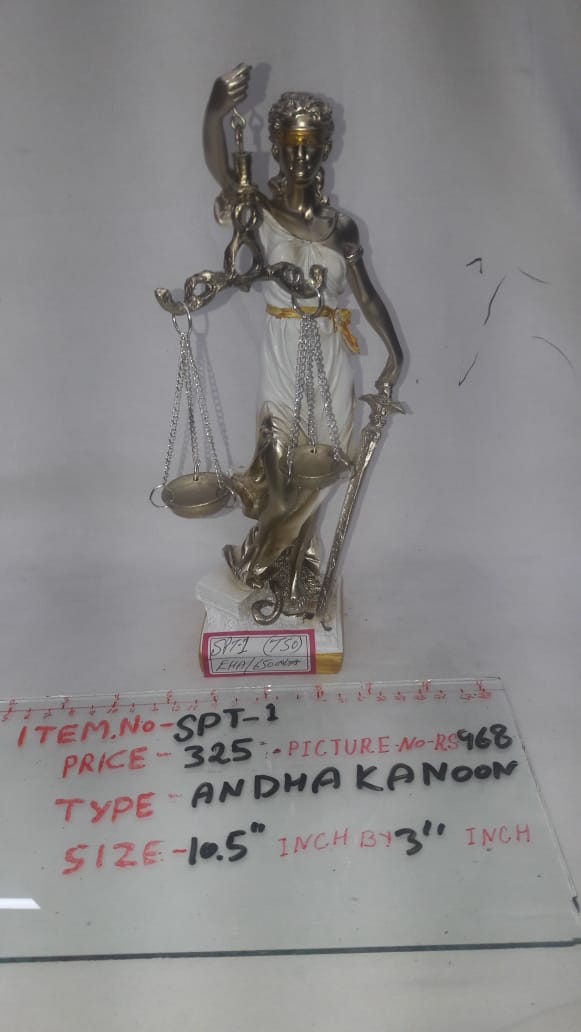 SPT-1 (750)
ITEM.No-SPT-1
PRICE - 325 PICTURE-No-RS968
TYPE - ANDHA KANOON
SIZE-10.5" INCH BY 3" INCH